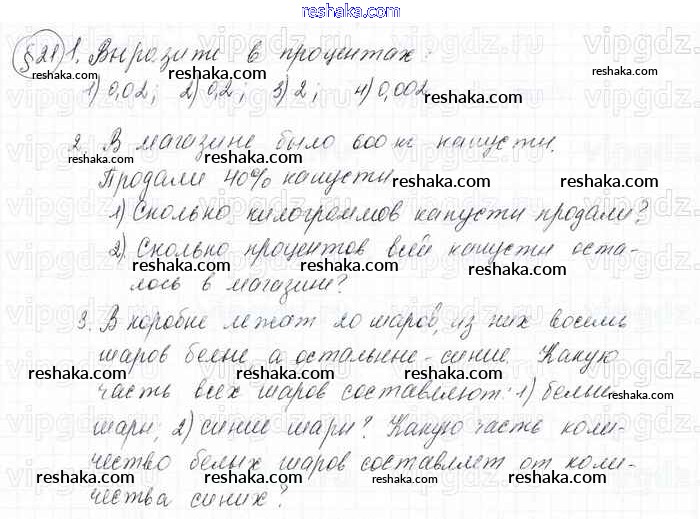 reshaka.com
§21) 1. Выразите в процентах:
1) 0,02; 2) 0,2; 3) 2; 4) 0,002
reshaka.com reshaka.com
2. В магазине было 600 кг капусти.
reshaka.com reshaka.com reshaka.com
Продали 40% капусти
reshaka.com
1) Сколько килограммов капусти продали?
reshaka.com
2) Сколько процентов всей капусти оста-
reshaka.com reshaka.com
лось в магазине?
reshaka.com
3. В коробке лежат 20 шаров, из них восемь
reshaka.com reshaka.com
шаров белые а остальные - синие. Какую
reshaka.com reshaka.com
часть всех шаров составляют: 1) белые
reshaka.com
шары; 2) синие шары? Какую часть коли-
reshaka.com reshaka.com
чество белых шаров составляет от коли-
reshaka.com reshaka.com
чества синих?
reshaka.com reshaka.com